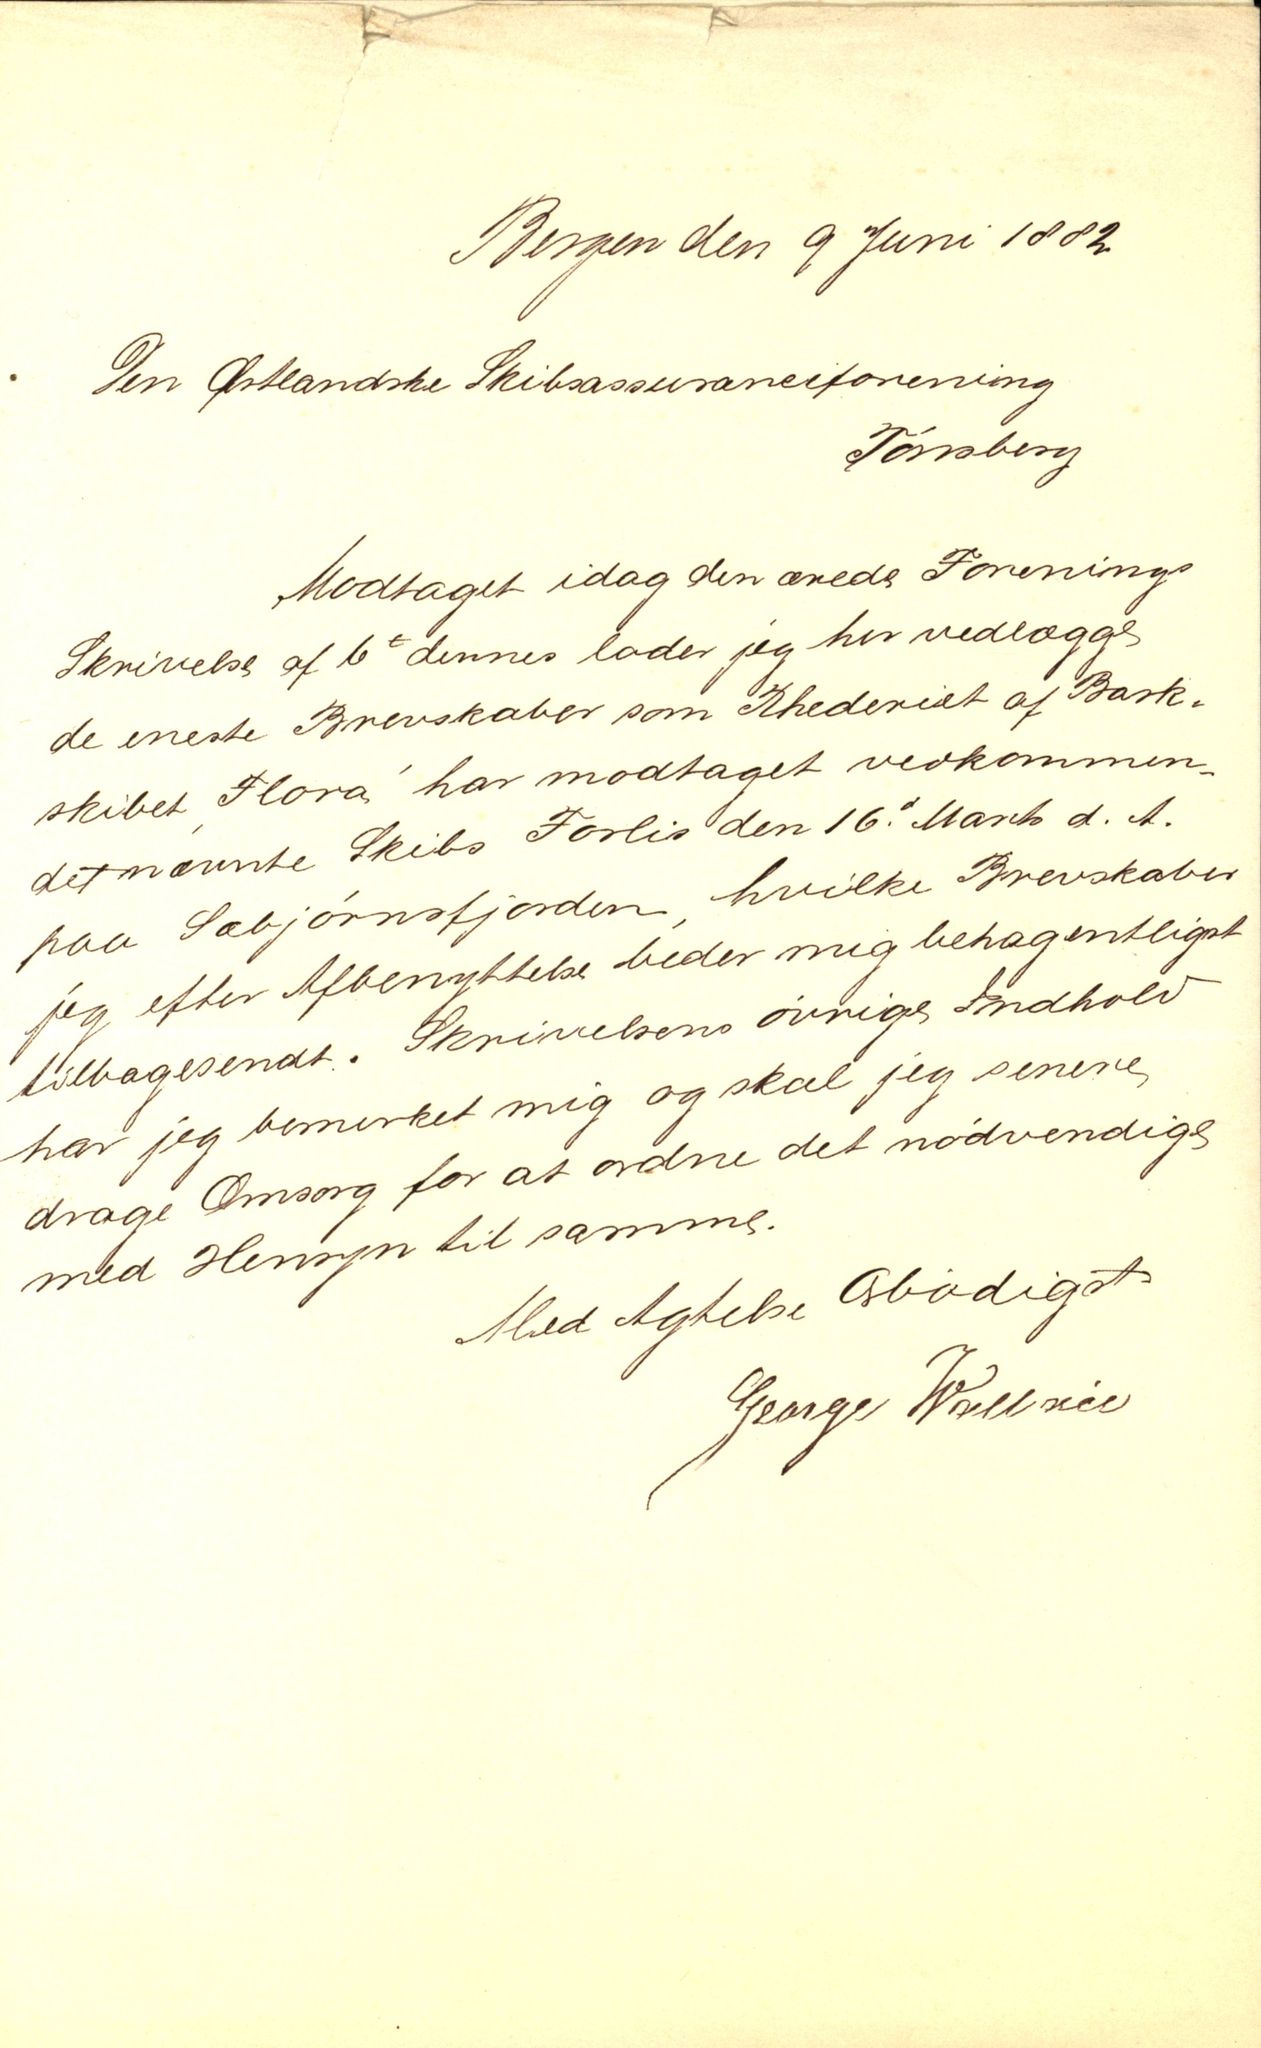 Bergen den 9 Juni 1882
Den Østlandske Skibsassuranceforening
Tónsberg
Modtaget idag den ærede Forenings
Skrivelse af 6t dennes lader jeg her vedlægge
de eneste Brevskaber som Rhederiet af Bark-
skibet „Flora“ har modtaget vedkommen-
det nævnte Skibs Forlis den 16d Marts d. A.
paa Sæbjórnsfjorden, hvilke Brevskaber
jeg efter Afbenyttelse beder mig behagentligst
tilbagesendt. Skrivelsens óvrige Indhold
har jeg bemerket mig og skal jeg senere
drage Omsorg for at ordne det nódvendige
med Hensyn til samme.
Med Agtelse Ærbódigst
George